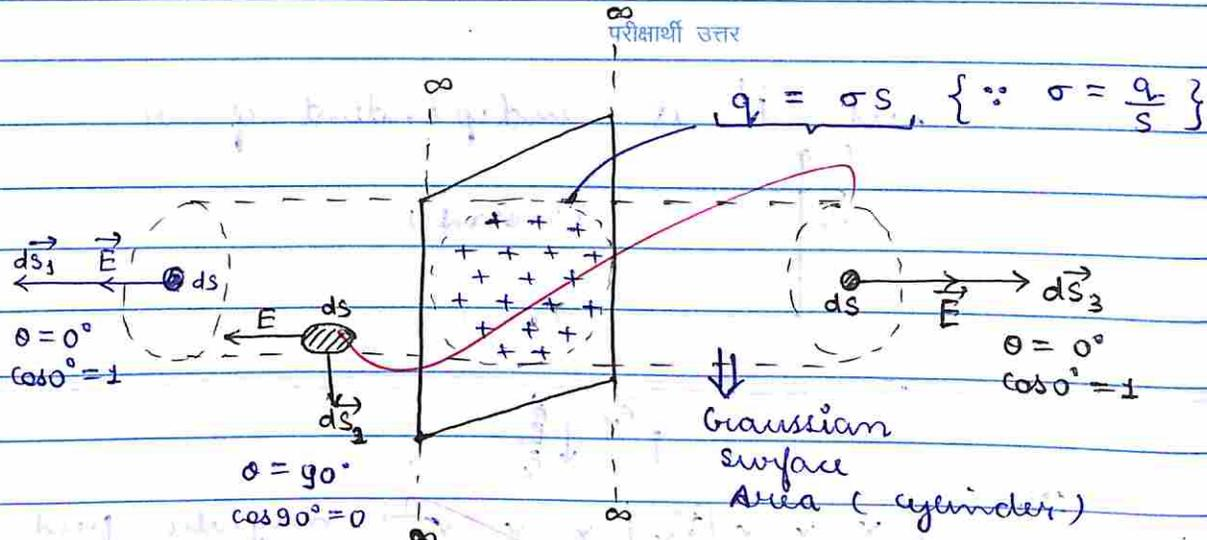 ∞
परीक्षार्थी उत्तर
∞
q = σS { ∵ σ = q/S }
+ + +
+ + + +
+ + +
+ + + +
+ + +
+ +
dS₁ E ds
θ = 0°
cos0° = 1
E ds
dS₂
θ = 90°
cos90° = 0
ds E dS₃
θ = 0°
cos0° = 1
⇓
Gaussian
surface
Area ( cylinder )
∞
∞